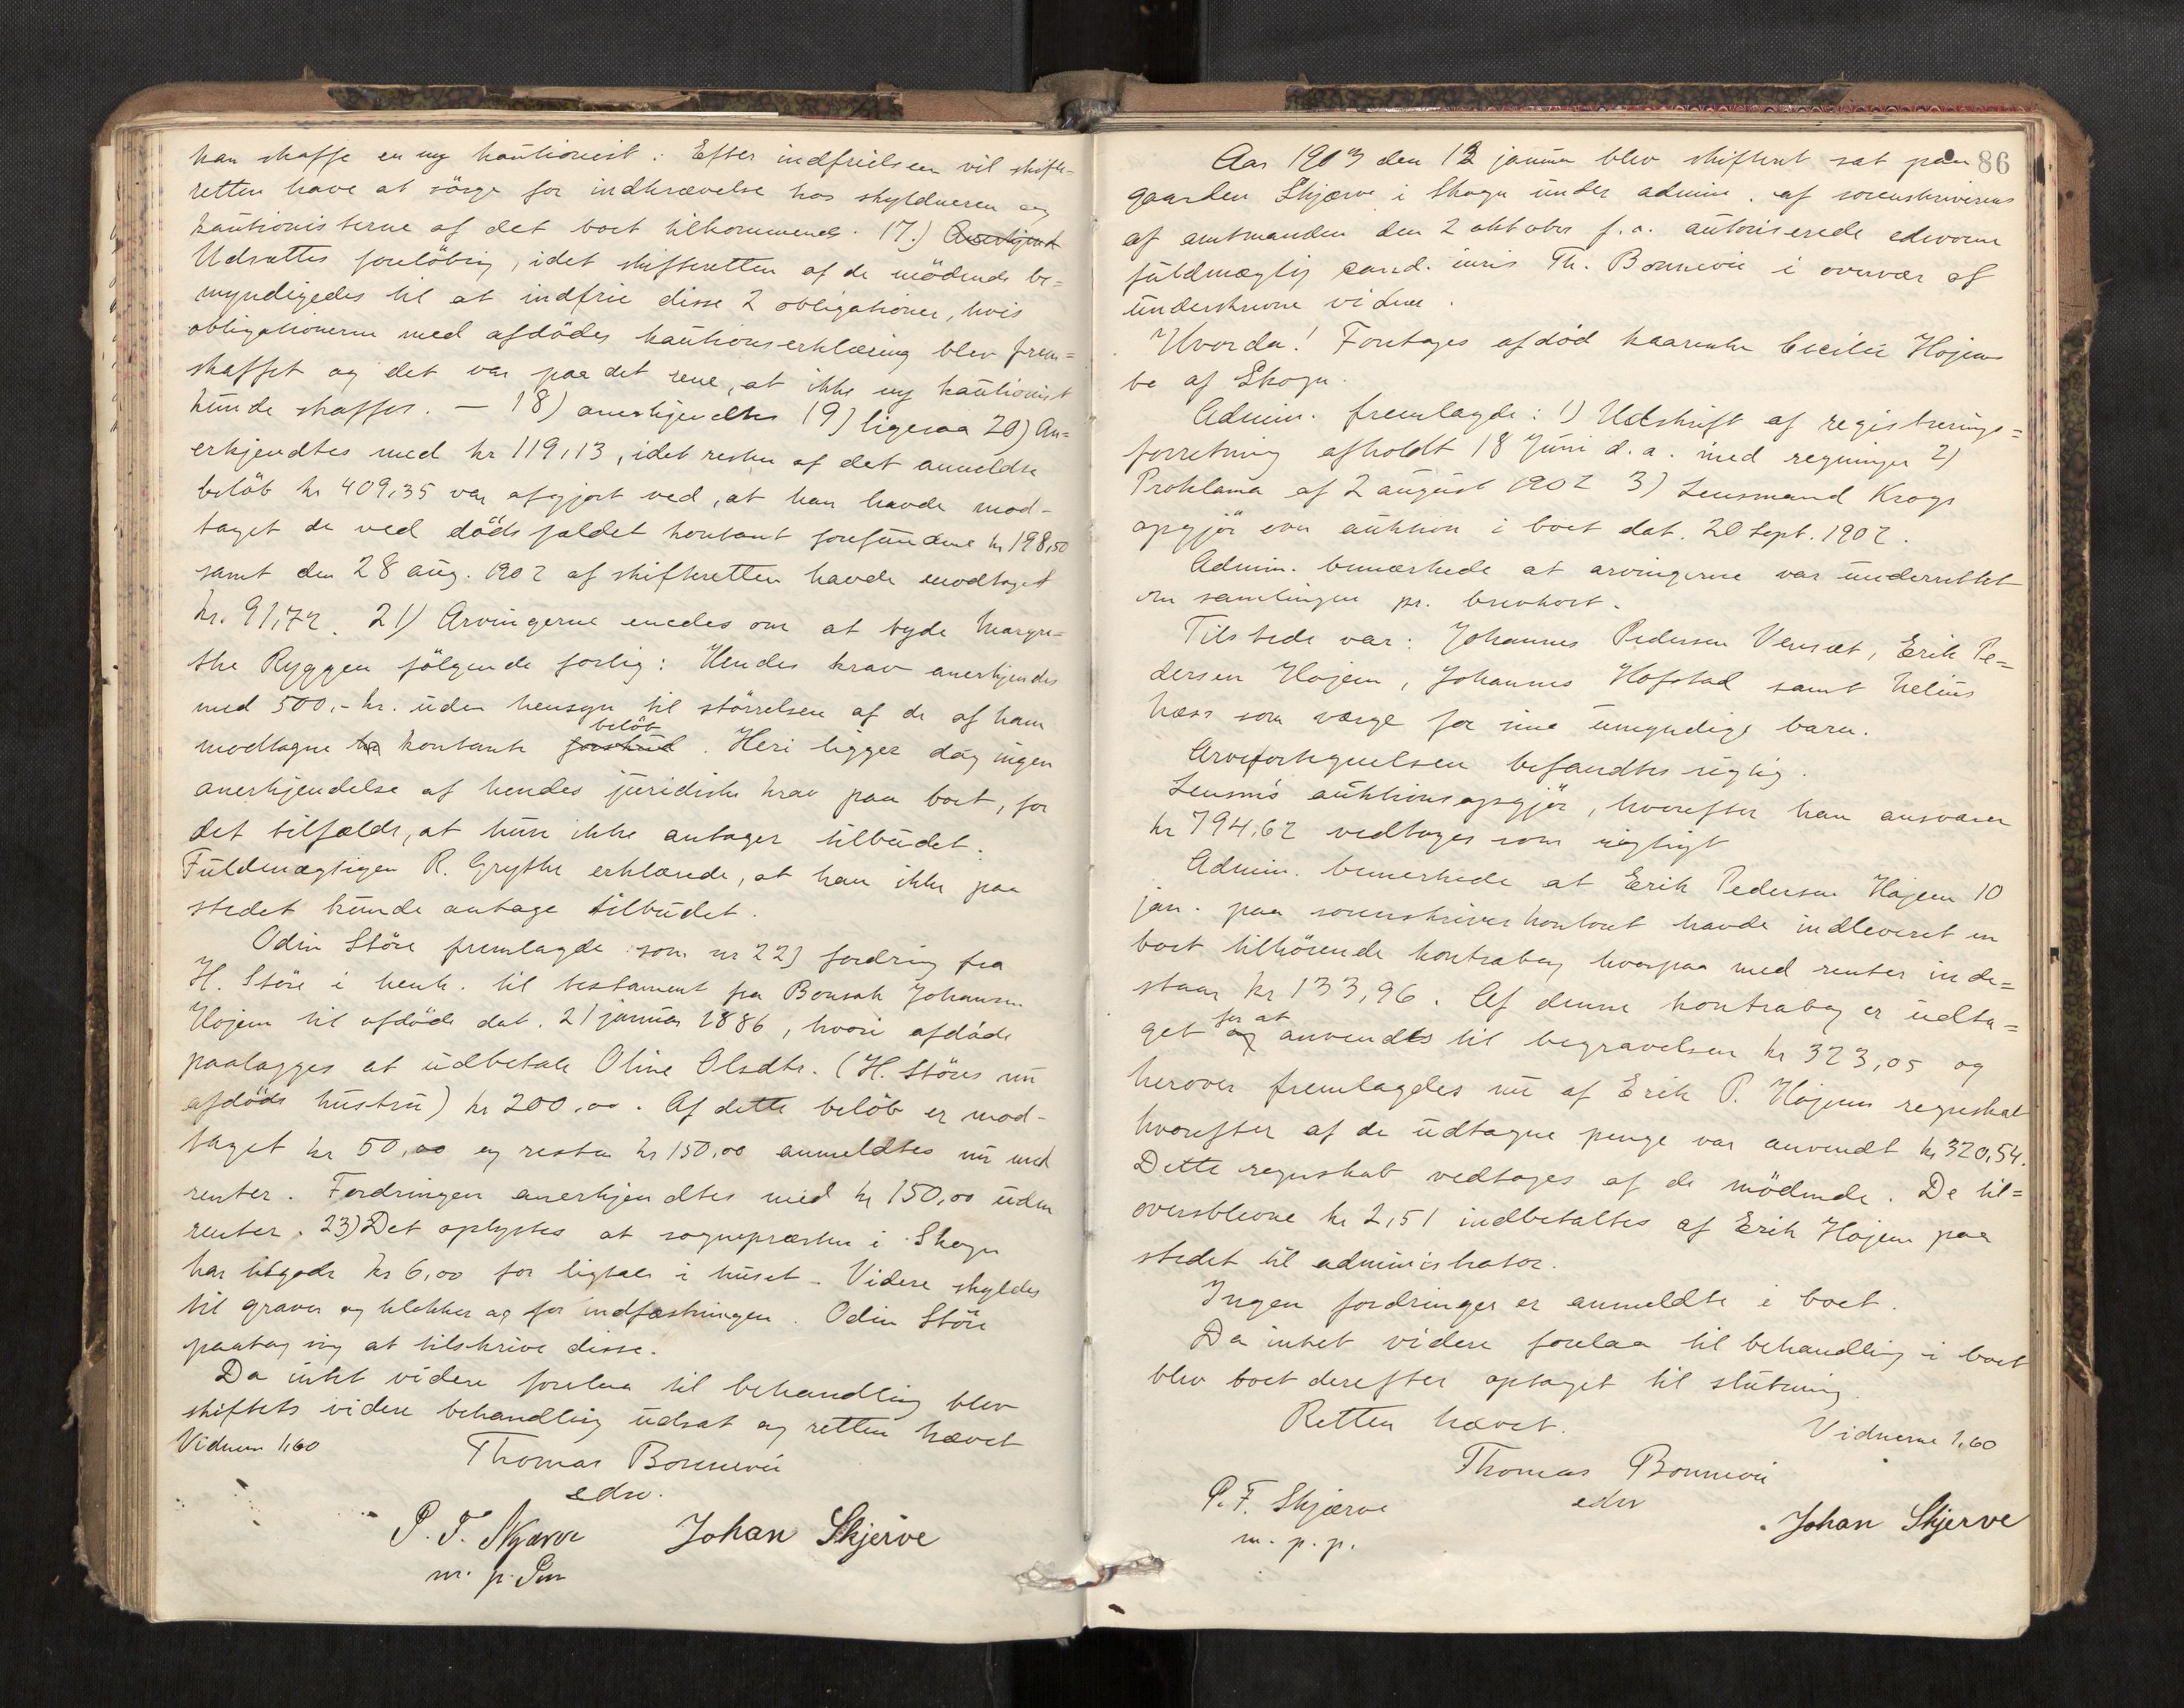 kan skaffe en ny kautionist. Efter indfrielsen vil skifte-
retten have at sörge for indkrævelse hos skyldneren og
kautionisterne af det boet tilkommende. 17.) Anerkjendt
Udsættes foreløbig, idet skifteretten af de mödende be=
myndigedes til at indfrie disse 2 obligationer, hvis
obligationerne med afdödes kautionserklæring blev frem=
skaffet og det var paa det rene, at ikke ny kautionist
kunde skaffes. – 18) anerkjendtes 19) ligesaa 20) An=
erkjendtes med kr 119,13, idet resten af det anmeldte
belöb kr 409,35 var afgjort ved, at han havde mod-
taget de ved dödsfaldet kontant forefundne kr 198,50
samt den 28 aug. 1902 af skifteretten havde modtaget
kr. 91,72. 21) Arvingerne enedes om at byde Margre-
the Ryggen fölgende forlig: Hendes krav anerkjendes
med 500,- kr. uden hensyn til störrelsen af de af ham
belöb
modtagne kontante forskud. Heri ligger dog ingen
anerkjendelse af hendes juridiske krav paa boet, for
det tilfælde, at hun ikke antager tilbudet.
Fuldmægtigen R. Grythe erklærede, at han ikke paa
stedet kunde antage tilbudet.
Odin Störe fremlagde som nr 22) fordring fra
H. Störe i henh. til testament fra Bonsak Johansen
Hojem til afdöde dat. 21 januar 1886, hvori afdöde
paalægges at udbetale Oline Olsdtr. (H. Störes nu
afdöde hustru) kr 200,00. Af dette belöb er mod-
taget kr 50,00 og resten kr 150,00 anmeldtes nu med
renter. Fordringen anerkjendtes med kr 150,00 uden
renter. 23) Det oplystes at sognepresten i Skogn
har tilgode kr 6,00 for ligtale i huset – Videre skyldes
til graver og klokker og for indfæstningen. Odin Störe
paatog sig at tilskrive disse.
Da intet videre forelaa til behandling blev
skiftets videre behandling udsat og retten hævet
Vidnerne 1,60
Thomas Bonnevie
edsv.
P. F. Skjærve Johan Skjerve
m. p. Pen
86
Aar 1903 den 12 januar blev skifteret sat paa
gaarden Skjærve i Skogn under admin. af sorenskriverens
af amtmanden den 2 oktober f. a. autoriserede edsvorne
fuldmægtig cand. juris Th. Bonnevie i overvær af
underskrevne vidner.
Hvorda! Foretages afdöd kaarenke Cecilie Hojems
bo af Skogn.
Admin. fremlagde: 1) Udskrift af registrerings=
forretning afholdt 18 Juni d. a. med regninger 2)
Proklama af 2 august 1902 3) Lensmand Krogs
opgjör over auktion i boet dat. 20 Sept. 1902.
Admin. bemærkede at arvingerne var underrettet
om samlingen pr. brevkort.
Tilstede var: Johannes Pedersen Vensæt, Erik Pe=
dersen Hojem, Johannes Hofstad samt Helius
Næss som værge for sine umyndige barn.
Arvefortegnelsen befandtes rigtig.
Lensm's auktionsopgjör, hvorefter han ansvarer
kr 794,62 vedtages som rigtigt
Admin. bemerkede at Erik Pedersen Hojem 10
jan. paa sorenskriverkontoret havde indleveret en
boet tilhörende kontrabog hvorpaa med renter inde=
staar kr 133,96. Af denne kontrabog er udta=
for at
get og anvendts til begravelsen kr 323,05 og
herover fremlagdes nu af Erik P. Hojem regnskab
hvorefter af de udtagne penge var anvendt kr 320,54.
Dette regnskab vedtages af de mödende. De til=
oversblevne kr 2,51 indbetaltes af Erik Hojem paa
stedet til administrator.
Ingen fordringer er anmeldte i boet.
Da intet videre forelaa til behandling i boet
blev boet derefter optaget til slutning.
Retten hævet.
Vidnerne 1,60
Thomas Bonnevie
edsv
P. F. Skjærve
m. p. p.
Johan Skjerve